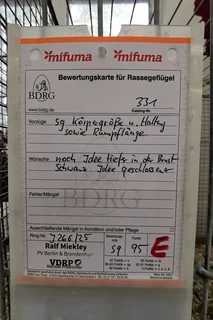 mifuma mifuma
Bewertungskarte für Rassegeflügel
BDRG
www.bdrg.de
331
Katalog-Nr.
Vorzüge
sg Körpergröße u. Haltg
sowie Rumpflänge
Wünsche
noch Idee tiefer in der Brust
Schwanz Idee geschlossener
Fehler/Mängel
Ausschließende Mängel in Kondition und/oder Pflege
Ring-Nr. J266/25
Ralf Miekley
PV Berlin & Brandenburg
VDRP
sg 95 E